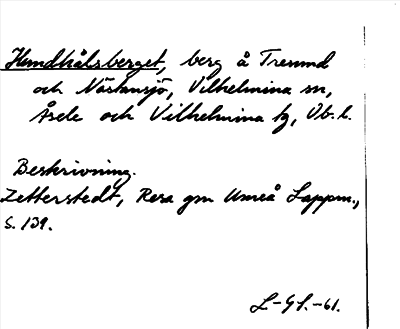 Hundkålsberget, berg å Tresund
och Nästansjö, Vilhelmina sn,
Åsele och Vilhelmina tg, Vb. l.
Beskrivning.
Zetterstedt, Resa gm Umeå Lappm.,
s. 139.
L-GS.-61.